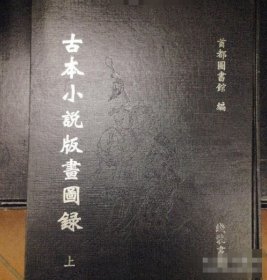 古本小說版畫圖錄
上
首都圖書館 編
綫裝書